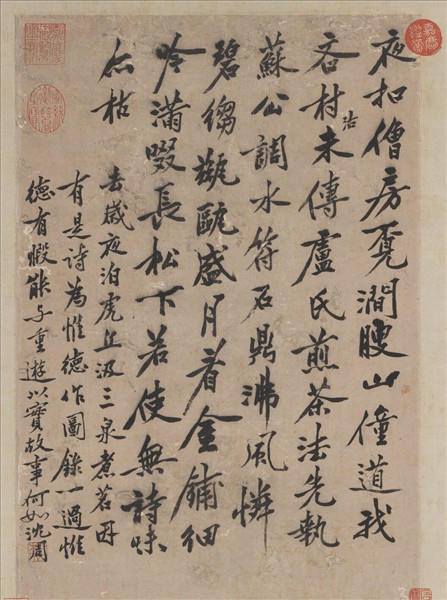 夜扣僧房覓澗腴山僮道我
吝村沽未傳盧氏煎茶法先執
蘇公調水符石鼎沸風憐
碧縐甆甌盛月看金鋪細
吟滿啜長松下若使無詩味
亦枯
去歲夜泊虎丘汲三泉煮茗因
有是詩為惟德作圖錄一過惟
德有暇能予重遊以實故事何如沈周